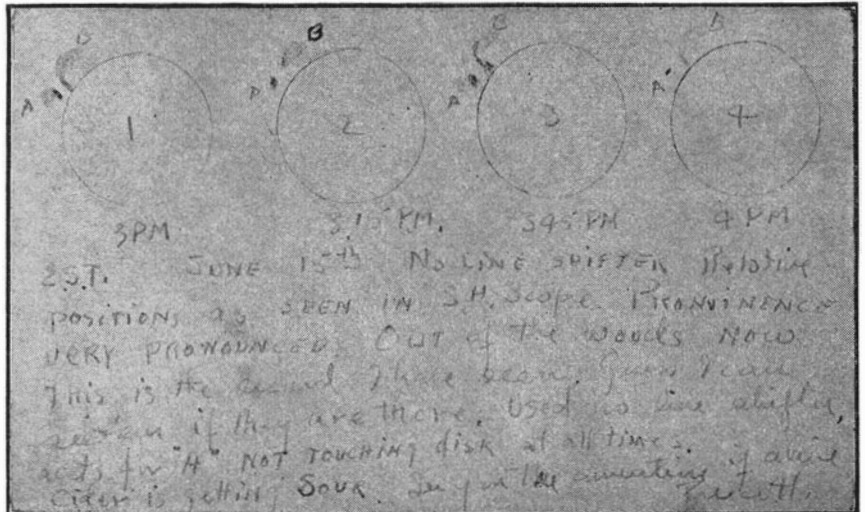 B B B B
A A A A
1 2 3 4
3 PM 3,15 P.M. 345 PM 4 PM
E.S.T. JUNE 15th No LINE SHIFTER Relative
positions as SEEN IN S.H. Scope. PRONVINENCE
VERY PRONOUNCED. OUT of the WOODS NOW
This is the second I have seen. Guess I can
if they are there. Used no line shifter,
acts for "A" NOT TOUCHING disk at all times.
Cider is getting SOUR.